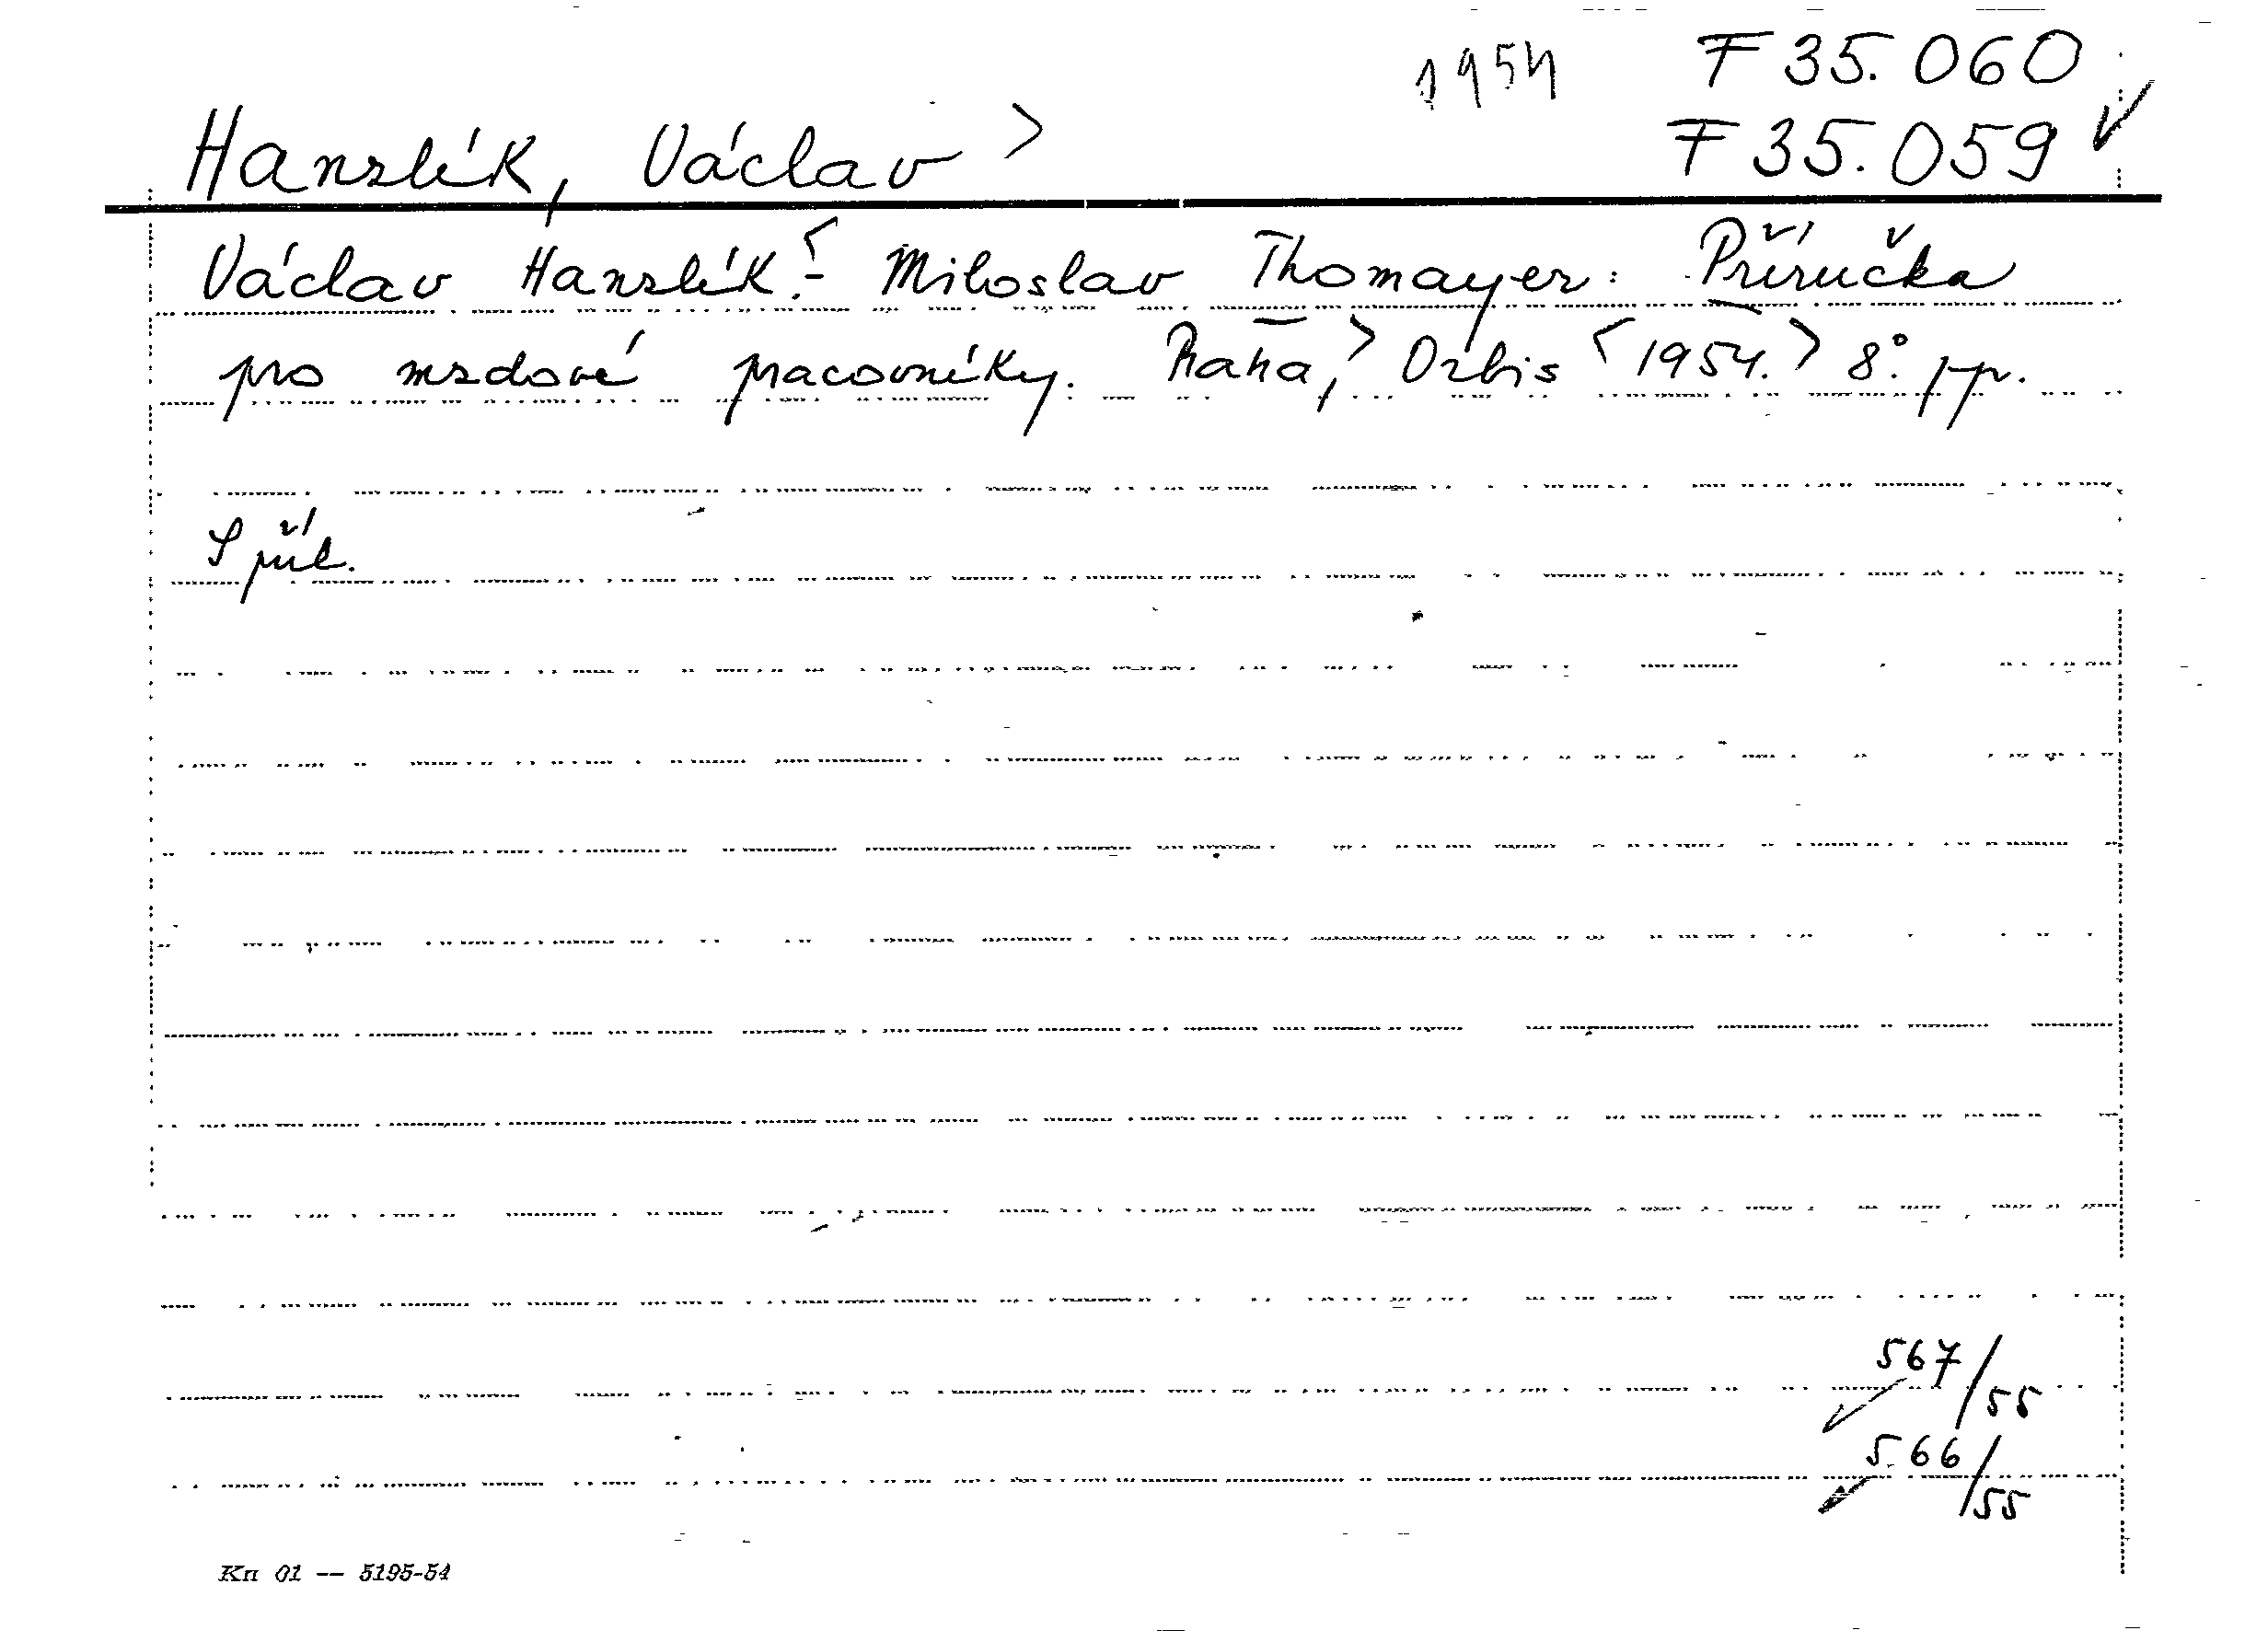 1954 F 35.060
Hanzlík, Václav > F 35.059 ✓
Václav Hanzlík <- Miloslav Thomayer: Příručka
pro mzdové pracovníky. Praha, > Orbis < 1954. > 8°. pp.
S příl.
567/55
566/55
Kn 01 — 5195-54